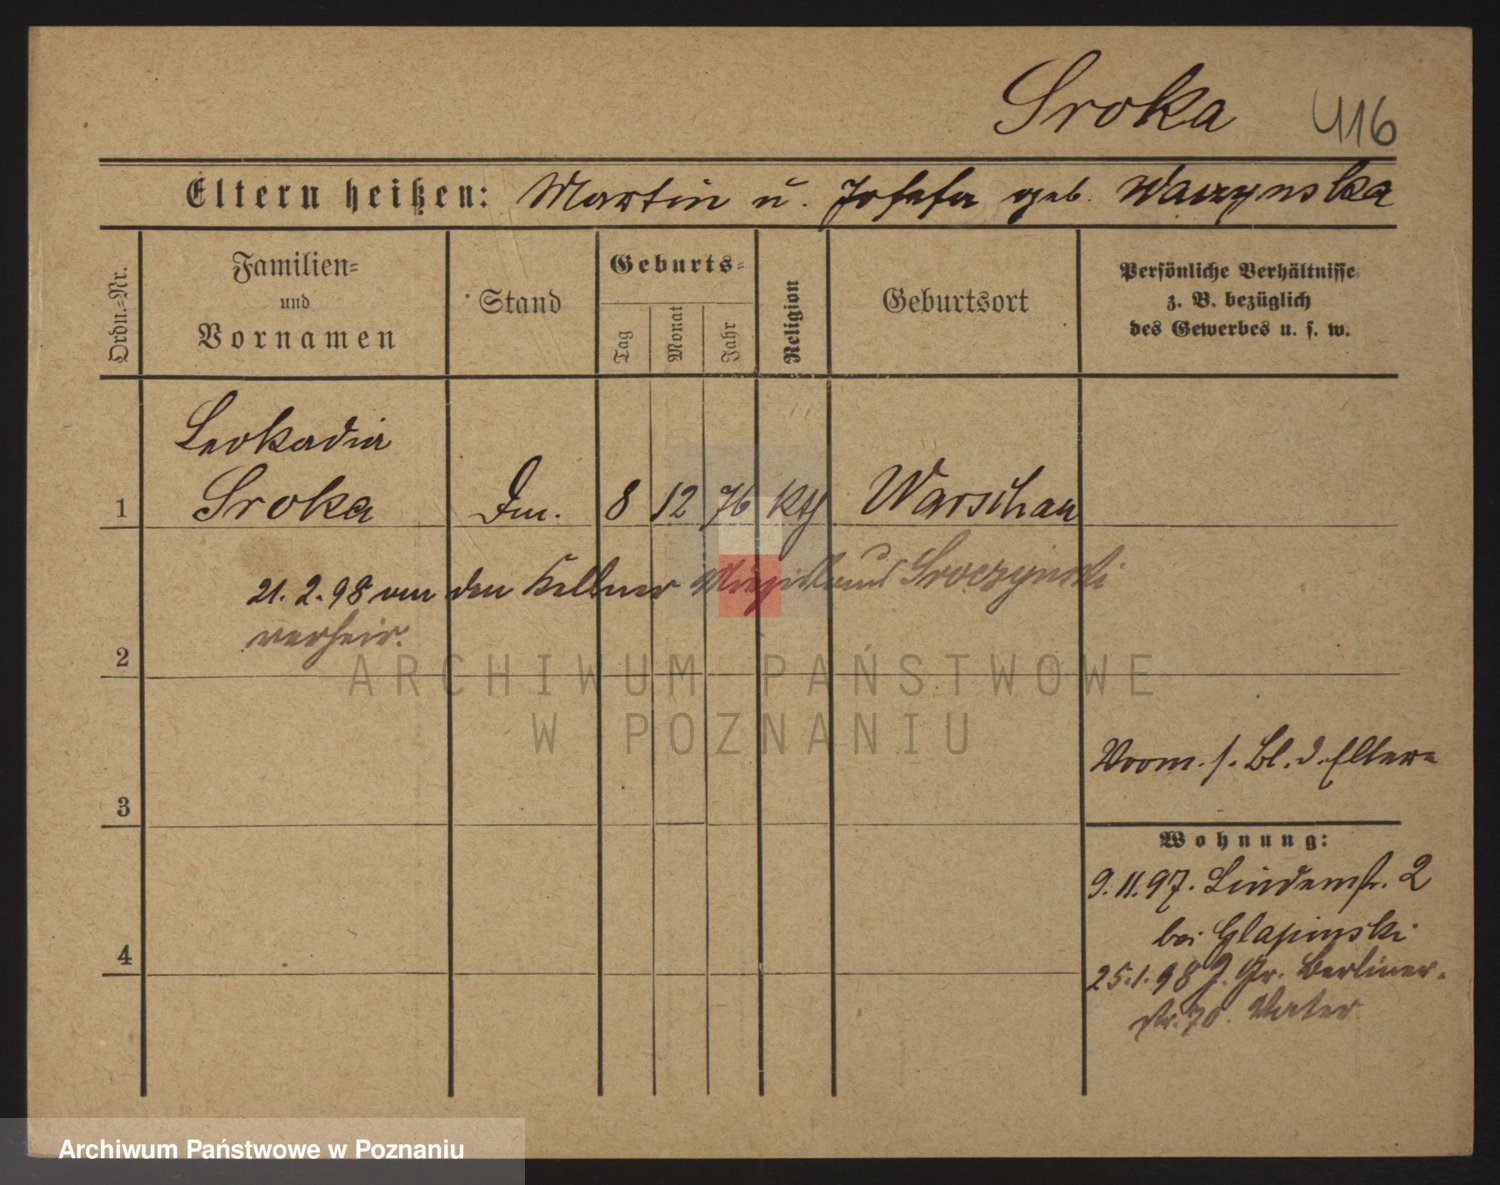 Sroka 416
Eltern heißen: Martin u. Josefa geb. Waczynska
Ordn.=Nr.
Familien=
und
Vornamen
Stand
Geburts=
Tag
Monat
Jahr
Religion
Geburtsort
Persönliche Verhältnisse
z. B. bezüglich
des Gewerbes u. s. w.
Leokadia
1 Sroka Dm. 8 12 76 kth Warschau
21. 2. 98 den Kellner Sroczynski
verheir.
2
ARCHIWUM PAŃSTWOWE
W POZNANIU
s. Bl. d. Eltern
3
Wohnung:
9. 11. 97. Lindenstr. 2
bei Glapinski
4
25. 1. 98 Gr. Berliner-
str. 70. Vater
Archiwum Państwowe w Poznaniu